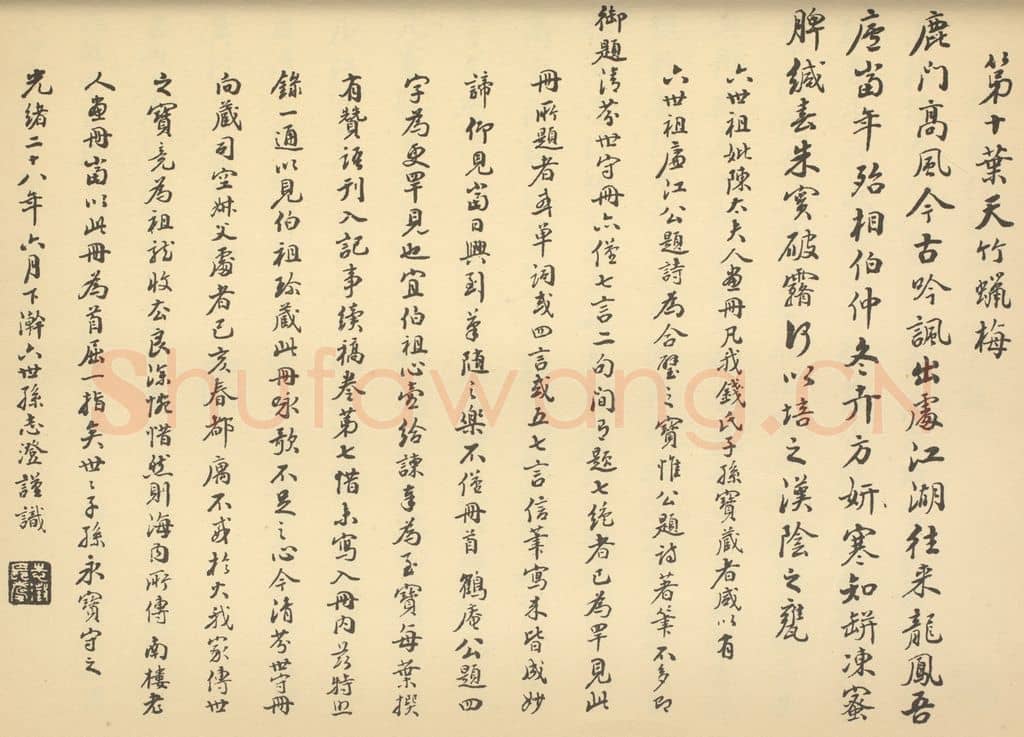 第十葉天竹蠟梅
鹿門高風今古吟諷出處江湖往来龍鳳吾
廬當年殆相伯仲冬卉方妍寒知缾凍蜜
脾緘春朱實破霧何以培之漢陰之甕
六世祖妣陳太夫人畫冊凡我錢氏子孫寶藏者咸以有
六世祖廉江公題詩為合璧之寶惟公題詩著筆不多即
御題清芬世守冊亦僅七言二句间有題七绝者已為罕見此
冊所題者或单詞或四言或五七言信筆寫来皆成妙
諦仰見當日興到筆随之樂不僅冊首鶴庵公題四
字為更罕見也宜伯祖心壺給諫奉為至寶每葉撰
有贊語刊入記事續稿卷第七惜未寫入冊内茲特照
錄一通以見伯祖珍藏此冊咏歌不足之心今清芬世守冊
向藏司空叔父處者己亥春都寓不戒於火我家傳世
之寶竟為祖龍收去良深惋惜然則海内所傳南楼老
人畫冊當以此冊為首屈一指矣世々子孫永寶守之
光緒二十八年六月下澣六世孫志澄謹識
Shufawang.CN